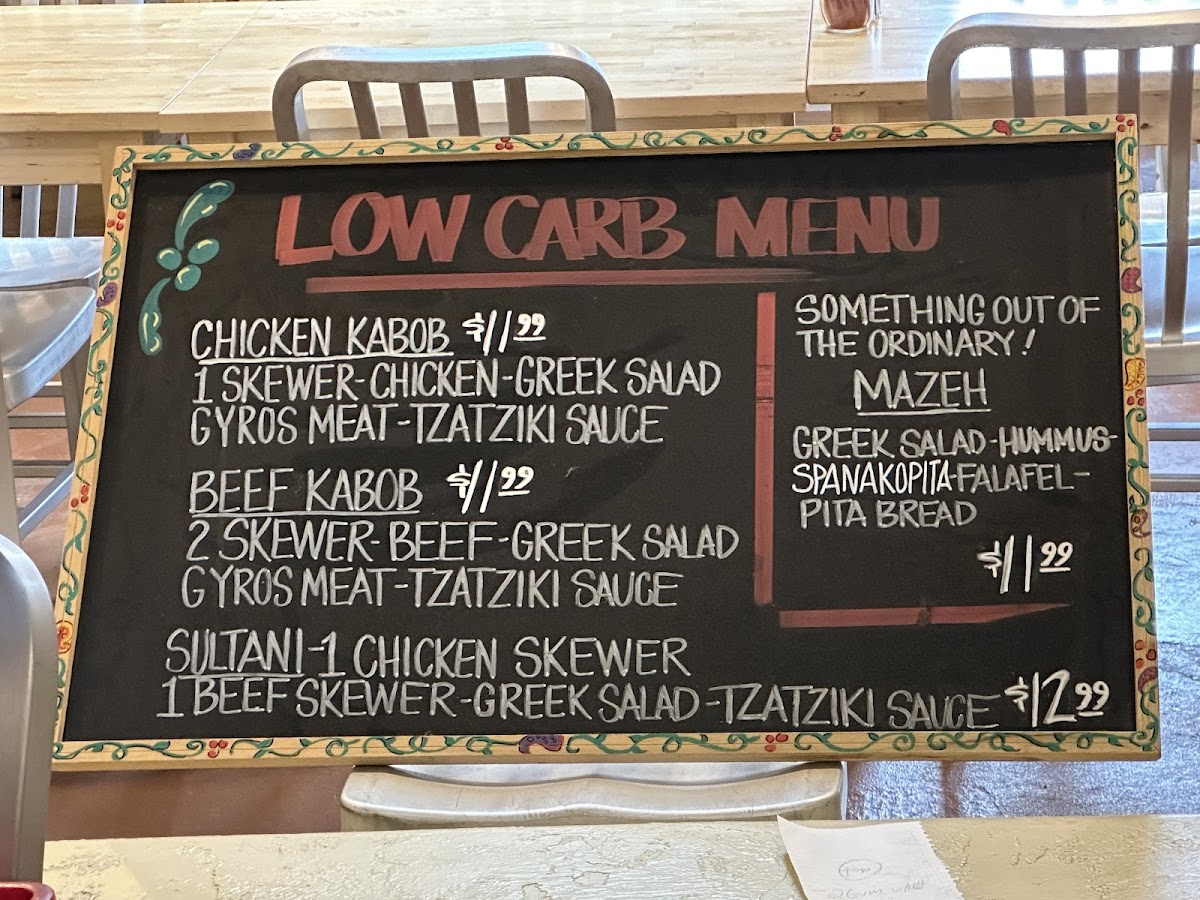 LOW CARB MENU
CHICKEN KABOB $11.99
1 SKEWER-CHICKEN-GREEK SALAD
GYROS MEAT-TZATZIKI SAUCE
BEEF KABOB $11.99
2 SKEWER-BEEF-GREEK SALAD
GYROS MEAT-TZATZIKI SAUCE
SULTANI-1 CHICKEN SKEWER
1 BEEF SKEWER-GREEK SALAD-TZATZIKI SAUCE $12.99
SOMETHING OUT OF
THE ORDINARY!
MAZEH
GREEK SALAD-HUMMUS-
SPANAKOPITA-FALAFEL-
PITA BREAD
$11.99